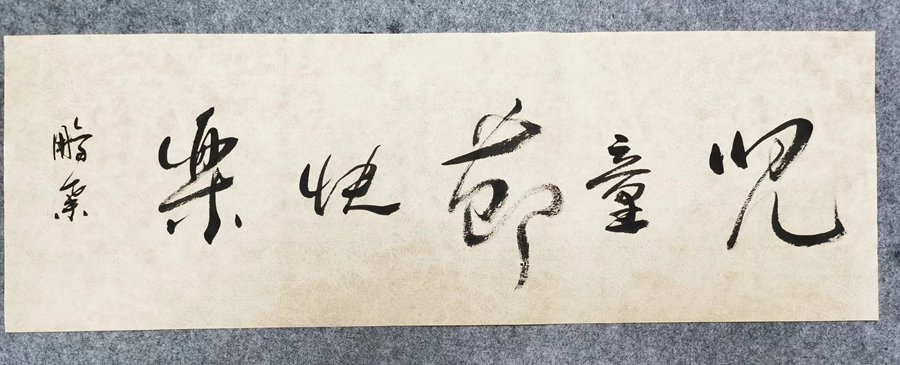 兒童節快樂
鵬